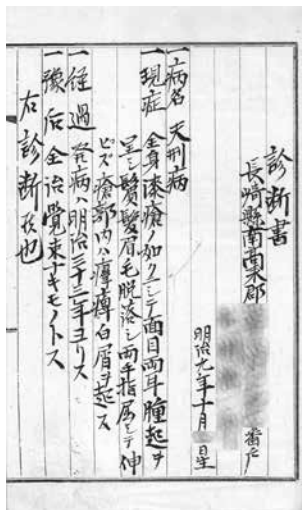 診断書
長崎縣南高来郡 番戸
明治九年十月 日生
一病名 天刑病
一現症 全身漆瘡ノ如クニシテ面目両耳腫起ヲ
呈シ鬚髪眉毛脱落シ両手指屈シテ伸
ビズ瘡部内ハ痺白屑ヲ起ス
一経過 発病ハ明治三十三年ヨリス
一豫后 全治覚束ナキモノトス
右診断候也